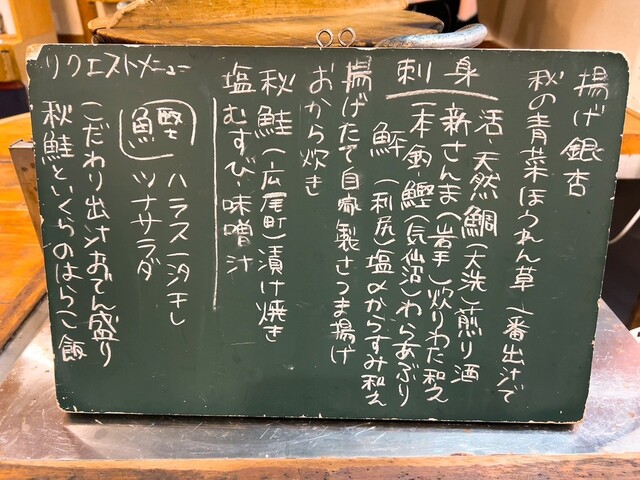 揚げ銀杏
秋の青菜ほうれん草 一番出汁で
刺身
活〆天然鯛(大洗)煎り酒
新さんま(岩手)炊りわた和え
一本釣鰹(気仙沼)わらあぶり
(利尻)塩〆からすみ和え
揚げたて自家製さつま揚げ
おから炊き
秋鮭(広尾町)漬け焼き
塩むすび・味噌汁
リクエストメニュー
鰹 ハラス一汐干し
ツナサラダ
こだわり出汁おでん盛り
秋鮭といくらのはらこ飯